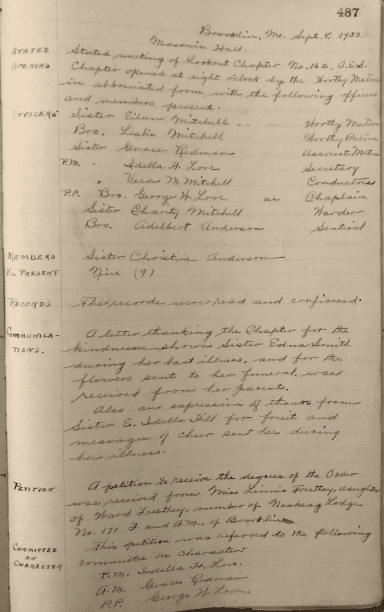 487
Brooklin, Me. Sept. 8, 1933.
Masonic Hall.
STATED Stated meeting of Lookout Chapter No. 162, O.E.S.
OPENING Chapter opened at eight o'clock by the Worthy Matron
in abbreviated form, with the following officers
and members present.
OFFICERS Sister Eileen Mitchell Worthy Matron
Bro. Leslie Mitchell Worthy Patron
Sister Grace Redman Associate Matron
P.M. " Idella H. Love Secretary
" Vera M. Mitchell Conductress
P.P. Bro. George W. Love as Chaplain
Sister Charity Mitchell Warder
Bro. Adelbert Anderson Sentinel
MEMBERS Sister Christine Anderson
No. PRESENT Nine (9)
RECORDS The records were read and confirmed.
COMMUNICA- A letter thanking the Chapter for the
TIONS. kindnesses shown Sister Edna Smith
during her last illness, and for the
flowers sent to her funeral, was
received from her parent.
Also an expression of thanks from
Sister E. Idella Hill for fruit and
messages of cheer sent her during
her illness.
PETITION A petition to receive the degrees of the Order
was received from Miss Linnie Freethey, daughter
of Ward Freethey, member of Naskeag Lodge
No. 171 F. and A.M. of Brooklin.
This petition was referred to the following
COMMITTEE committee on character:
ON P.M. Idella H. Love.
CHARACTER A.M. Grace Redman
P.P. George W. Love.